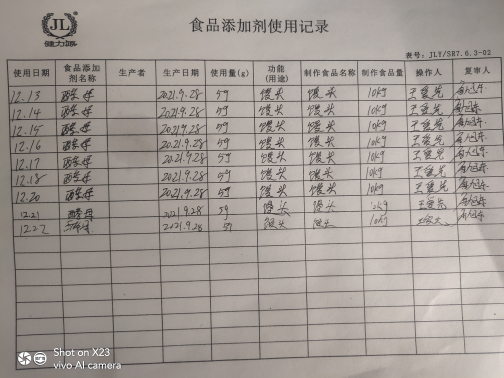 JL
健力源
食品添加剂使用记录
表号：JLY/SR7.6.3-02
使用日期 食品添加剂名称 生产者 生产日期 使用量(g) 功能(用途) 制作食品名称 制作食品量 操作人 复审人
12.13 酵母 2021.9.28 5g 馒头 馒头 10kg
12.14 酵母 2021.9.28 5g 馒头 馒头 10kg
12.15 酵母 2021.9.28 5g 馒头 馒头 10kg
12.16 酵母 2021.9.28 5g 馒头 馒头 10kg
12.17 酵母 2021.9.28 5g 馒头 馒头 10kg
12.18 酵母 2021.9.28 5g 馒头 馒头 10kg
12.20 酵母 2021.9.28 5g 馒头 馒头 10kg
12.21 酵母 2021.9.28 5g 馒头 馒头 10kg
12.22 2021.9.28 5g 馒头 馒头 10kg
Shot on X23
vivo AI camera